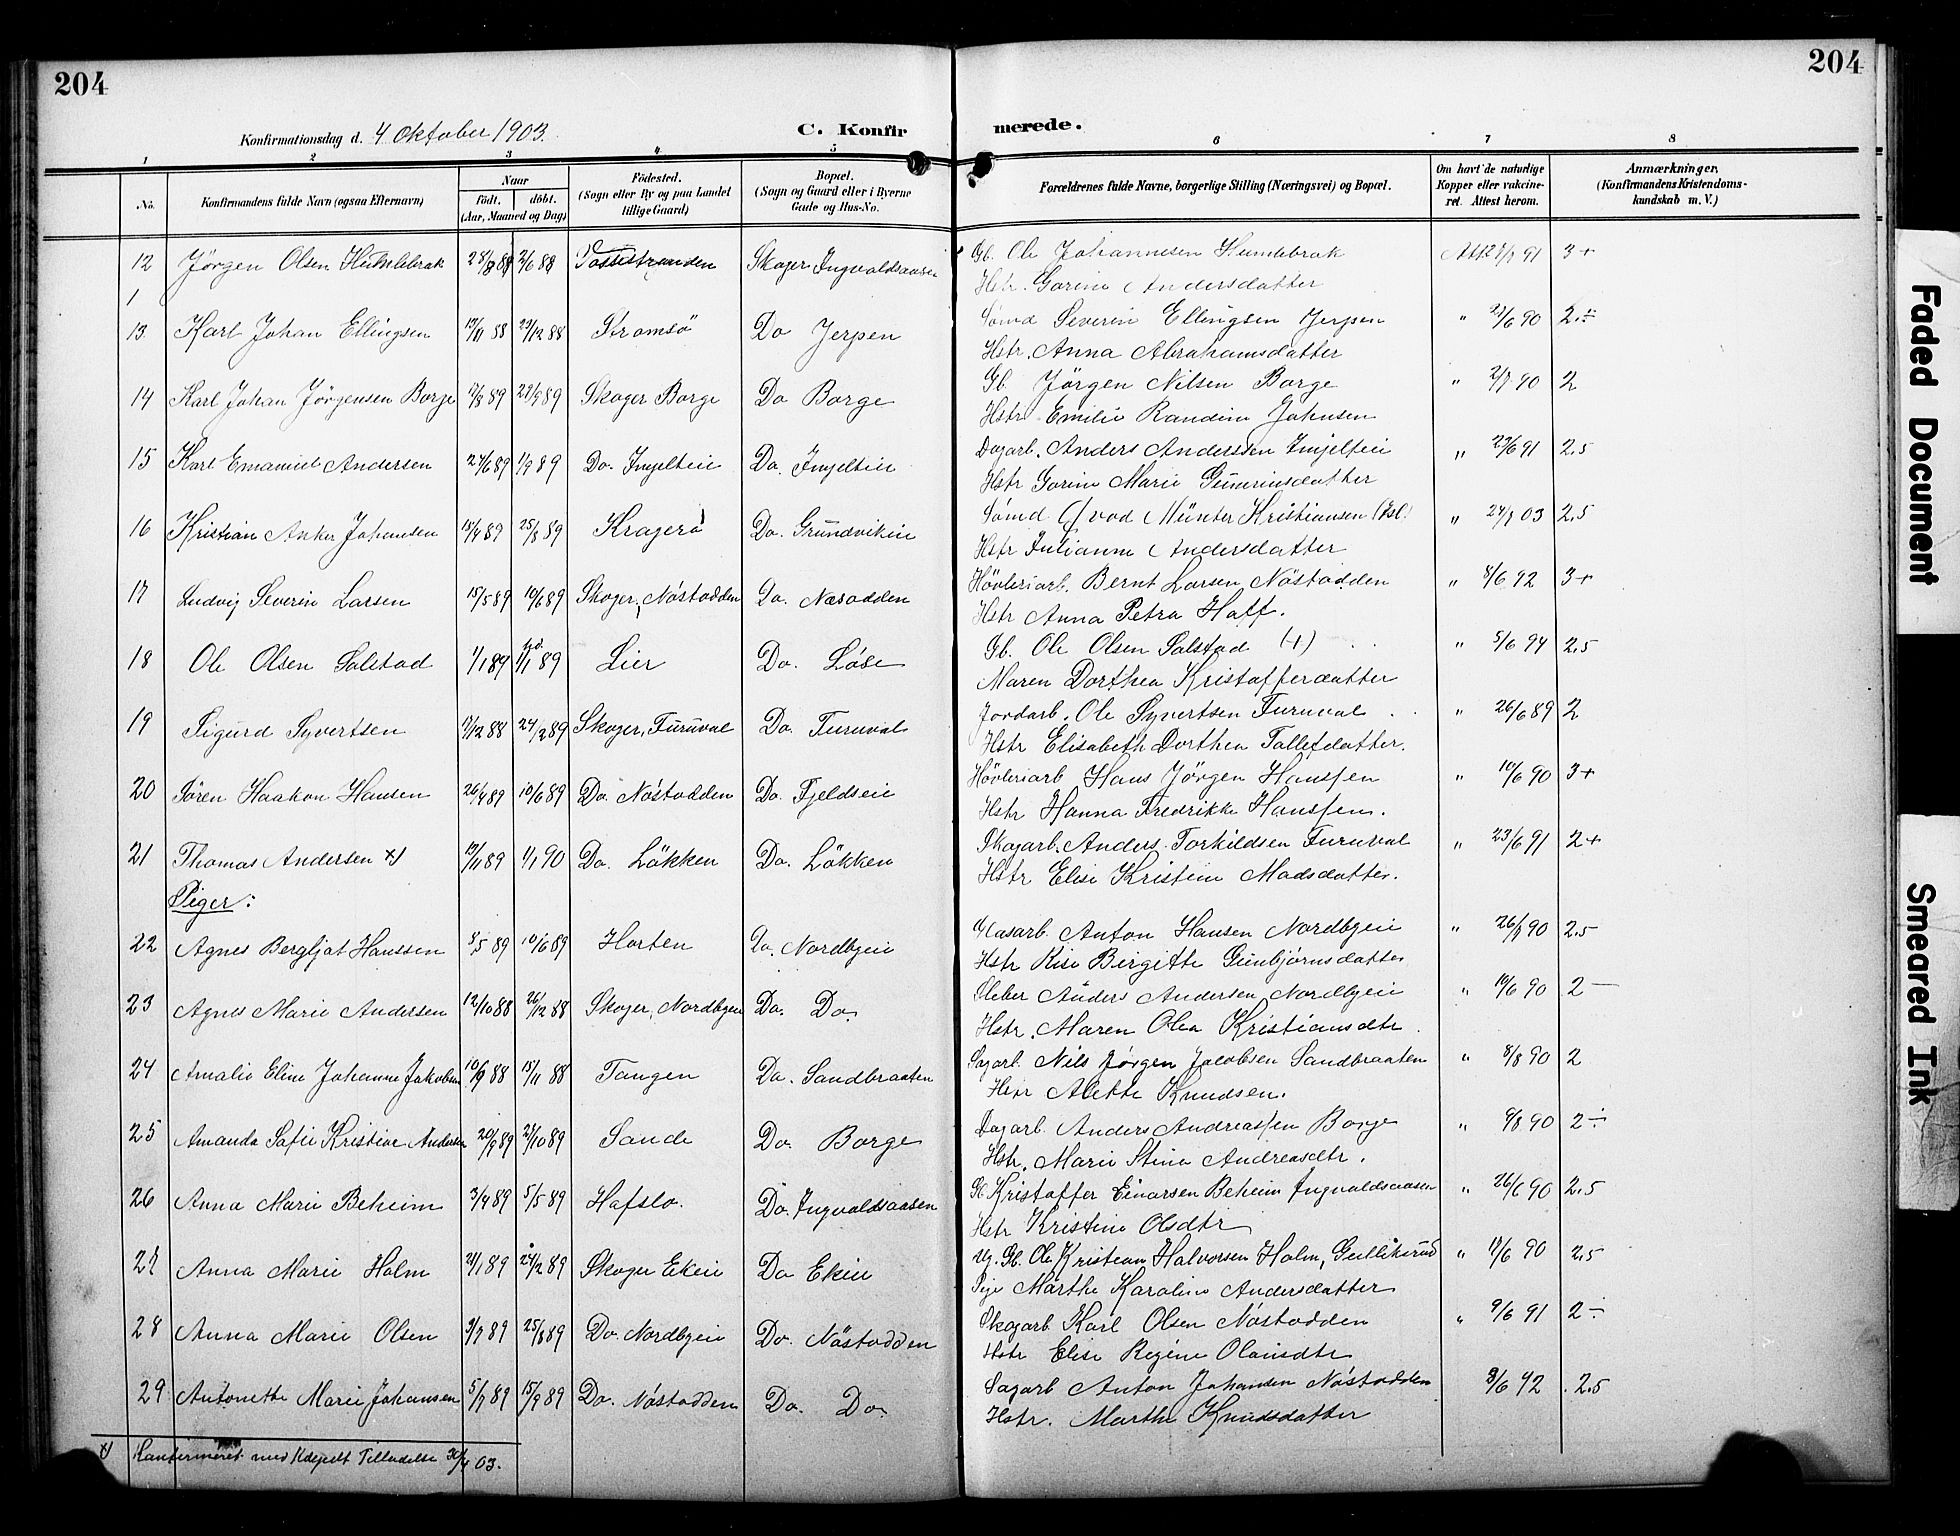 204
204
Konfirmationsdag d. 4 Oktober 1903.
C. Konfirmerede.
1 2 3 4 5 6 7 8
No.
Konfirmandens fulde Navn (ogsaa Efternavn)
Naar
født. døbt.
(Aar, Maaned og Dag)
Fødested.
(Sogn eller By og paa Landet
tillige Gaard)
Bopæl.
(Sogn og Gaard eller i Byerne
Gade og Hus-No.
Forældrenes fulde Navne, borgerlige Stilling (Næringsvei) og Bopæl.
Om havt de naturlige
Kopper eller vakcine-
ret. Attest herom.
Anmærkninger.
(Konfirmandens Kristendoms-
kundskab m. V.)
12 Jørgen Olsen Humlebrak 88 2/6 88 Skoger Ingvaldsaasen Gb. Ole Johannesen Humlebrak 91 3+
Hstr. Gorine Andersdatter
13 Karl Johan Ellingsen 23/12 88 Strømsø Do Jerpen Sømd Severin Ellingsen Jerpen " 90 2.÷
Hstr. Anna Abrahamsdatter
14 Karl Johan Jørgensen Borge 89 29/9 89 Skoger Borge Do Borge Gb. Jørgen Nilsen Borge " 2/7 90 2
Hstr Emilie Randine Johnsen
15 Karl Emanuel Andersen 24/6 89 1/9 89 Do. Ingelteie Do. Ingelteie Dagarb. Anders Anderssen Ingelteie " 23/6 91 2.5
Hstr Gorine Marie Gunerinsdatter
16 Kristian Anker Johansen 18/4 89 25/8 89 Kragerø Do. Grundvikeie Sømd Münter Kristiansen " 03 2.5
Hstr Julianne Andersdatter
17 Ludvig Severin Larsen 15/5 89 10/6 89 Skoger, Nøstodden Do. Næsodden Høvleriarb. Bernt Larsen, Nøstodden " 8/6 92 3+
Hstr Anna Petra Hoff.
18 Ole Olsen Solstad 1/1 89 1/1 89 Lier Do. Løse Gb. Ole Olsen Solstad (+) " 5/6 94 2.5
Maren Dorthea Kristofferdatter
19 Sigurd Syvertsen 88 24/2 89 Skoger, Furuval Do. Furuval Jordarb. Ole Syvertsen Furuval " 26/6 89 2
Hstr Elisabeth Dorthea Tollefdatter.
20 Søren Haakon Hansen 26/4 89 10/6 89 Do. Nøstodden Do. Fjeldseie Høvleriarb Hans Jørgen Hanssen " 10/6 90 3+
Hstr Hanna Fredrikke Hanssen.
21 Thomas Andersen x) 89 1/1 90 Do. Løkken Do. Løkken Skogarb. Anders Torkildsen Furuval " 23/6 91 2+
Hstr Elise Kristine Madsdatter.
Piger:
22 Agnes Bergljot Hanssen 89 10/6 89 Horten Do. Nordbyeie Anton Hansen Nordbyeie " 90 2.5
Hstr Birgitte Gunbjørnsdatter
23 Agnes Marie Andersen 12/10 88 26/12 88 Skoger, Nordbyeie Do. Do. Anders Andersen Nordbyeie " 10/6 90 2 —
Hstr. Maren Olea Kristiansdtr.
24 Amalie Eline Johanne Jakobsen 10/9 88 15/11 88 Tangen Do. Sandbraaten Sagarb. Nils Jørgen Jacobsen Sandbraaten " 8/8 90 2
Hstr Alette Knudsen.
25 Amanda Sofie Kristine Andersen 20/9 89 27/10 89 Sande Do. Borge Dagarb. Anders Andreassen Borge " 8/8 90 2÷
Hstr. Marie Stina Andreasdtr.
26 Anna Marie Beheim 3/4 89 5/5 89 Hafslo. Do. Ingvaldsaasen Gb. Kristoffer Einarsen Beheim Ingvaldsaasen " 26/6 90 2.5
Hstr Kristine Olsdtr
27 Anna Marie Holm 21/1 89 24/2 89 Skoger Ekeie Do Ekeie Ug. Gb. Ole Kristean Halvorsen Holm, Gulliksrud " 90 2.5
Pige Marthe Karoline Andersdatter
28 Anna Marie Olsen 89 25/8 89 Do. Nordbyeie Do. Nøstodden Skogarb. Karl Olsen Nøstodden " 9/6 91 2÷
Hstr Elise Regine Olausdtr
29 Antonette Marie Johansen 5/7 89 15/9 89 Do. Nøstodden Do. Do. Sagarb Anton Johansen Nøstodden 8/6 92 2.5
Hstr. Marthe Knudsdatter
x) Konfirmeret med Tilladelse 03.
Faded Document
Smeared Ink